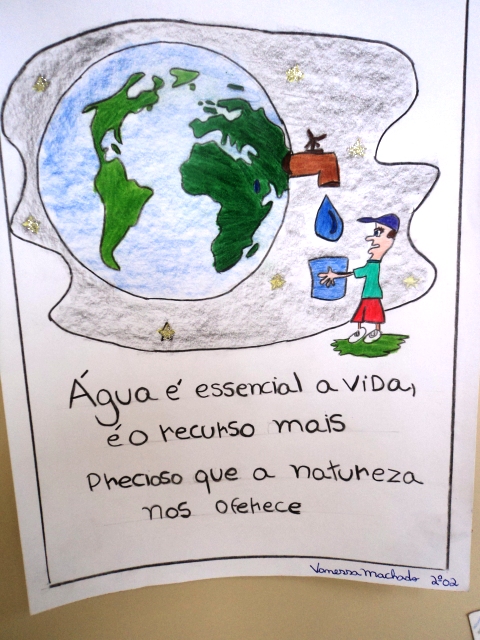 Água é essencial a viDa,
é o recurso mais
Precioso que a natureza
nos oferece
Vanessa Machado 2º02